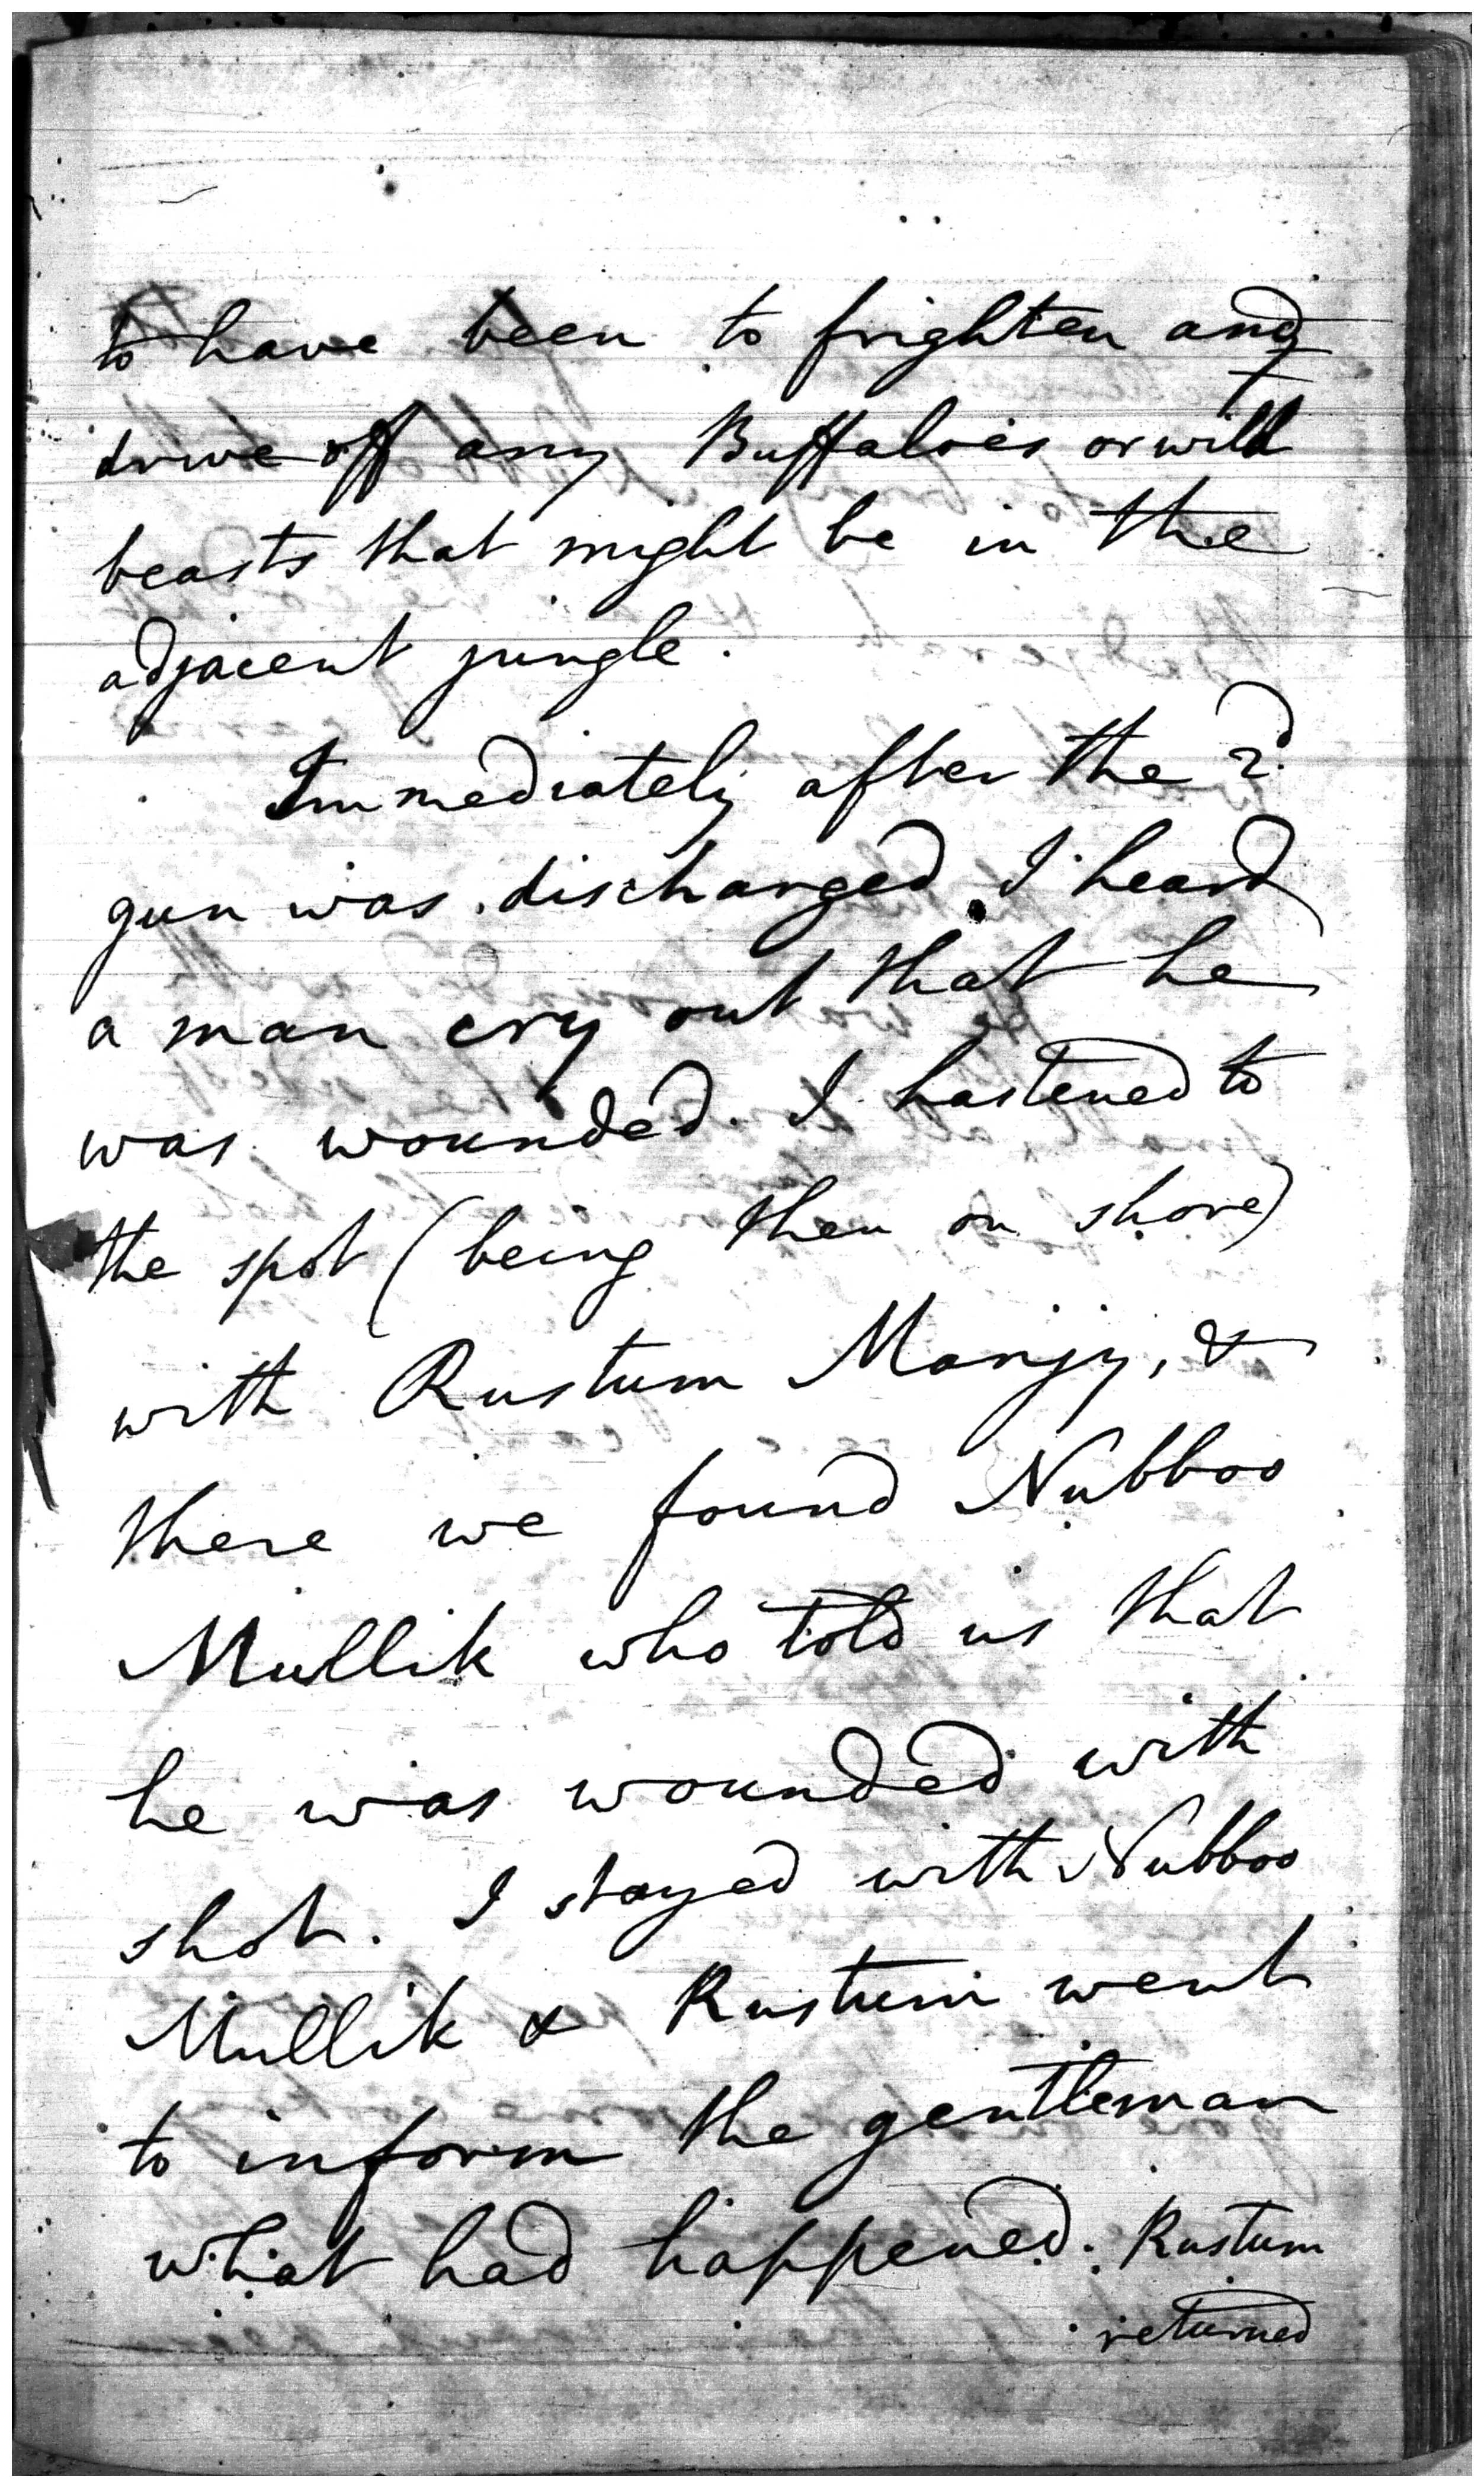 to have been to frighten and
drive off any Buffaloes or wild
beasts that might be in the
adjacent jungle.
Immediately after the 2d
gun was discharged I heard
a man cry out that he
was wounded. I hastened to
the spot (being then on shore)
with Rustum Manjy, &
there we found Nubboo
Mullik who told us that
he was wounded with
shot. I stayed with Nubboo
Mullik & Rustum went
to inform the gentleman
what had happened. Rustum
returned